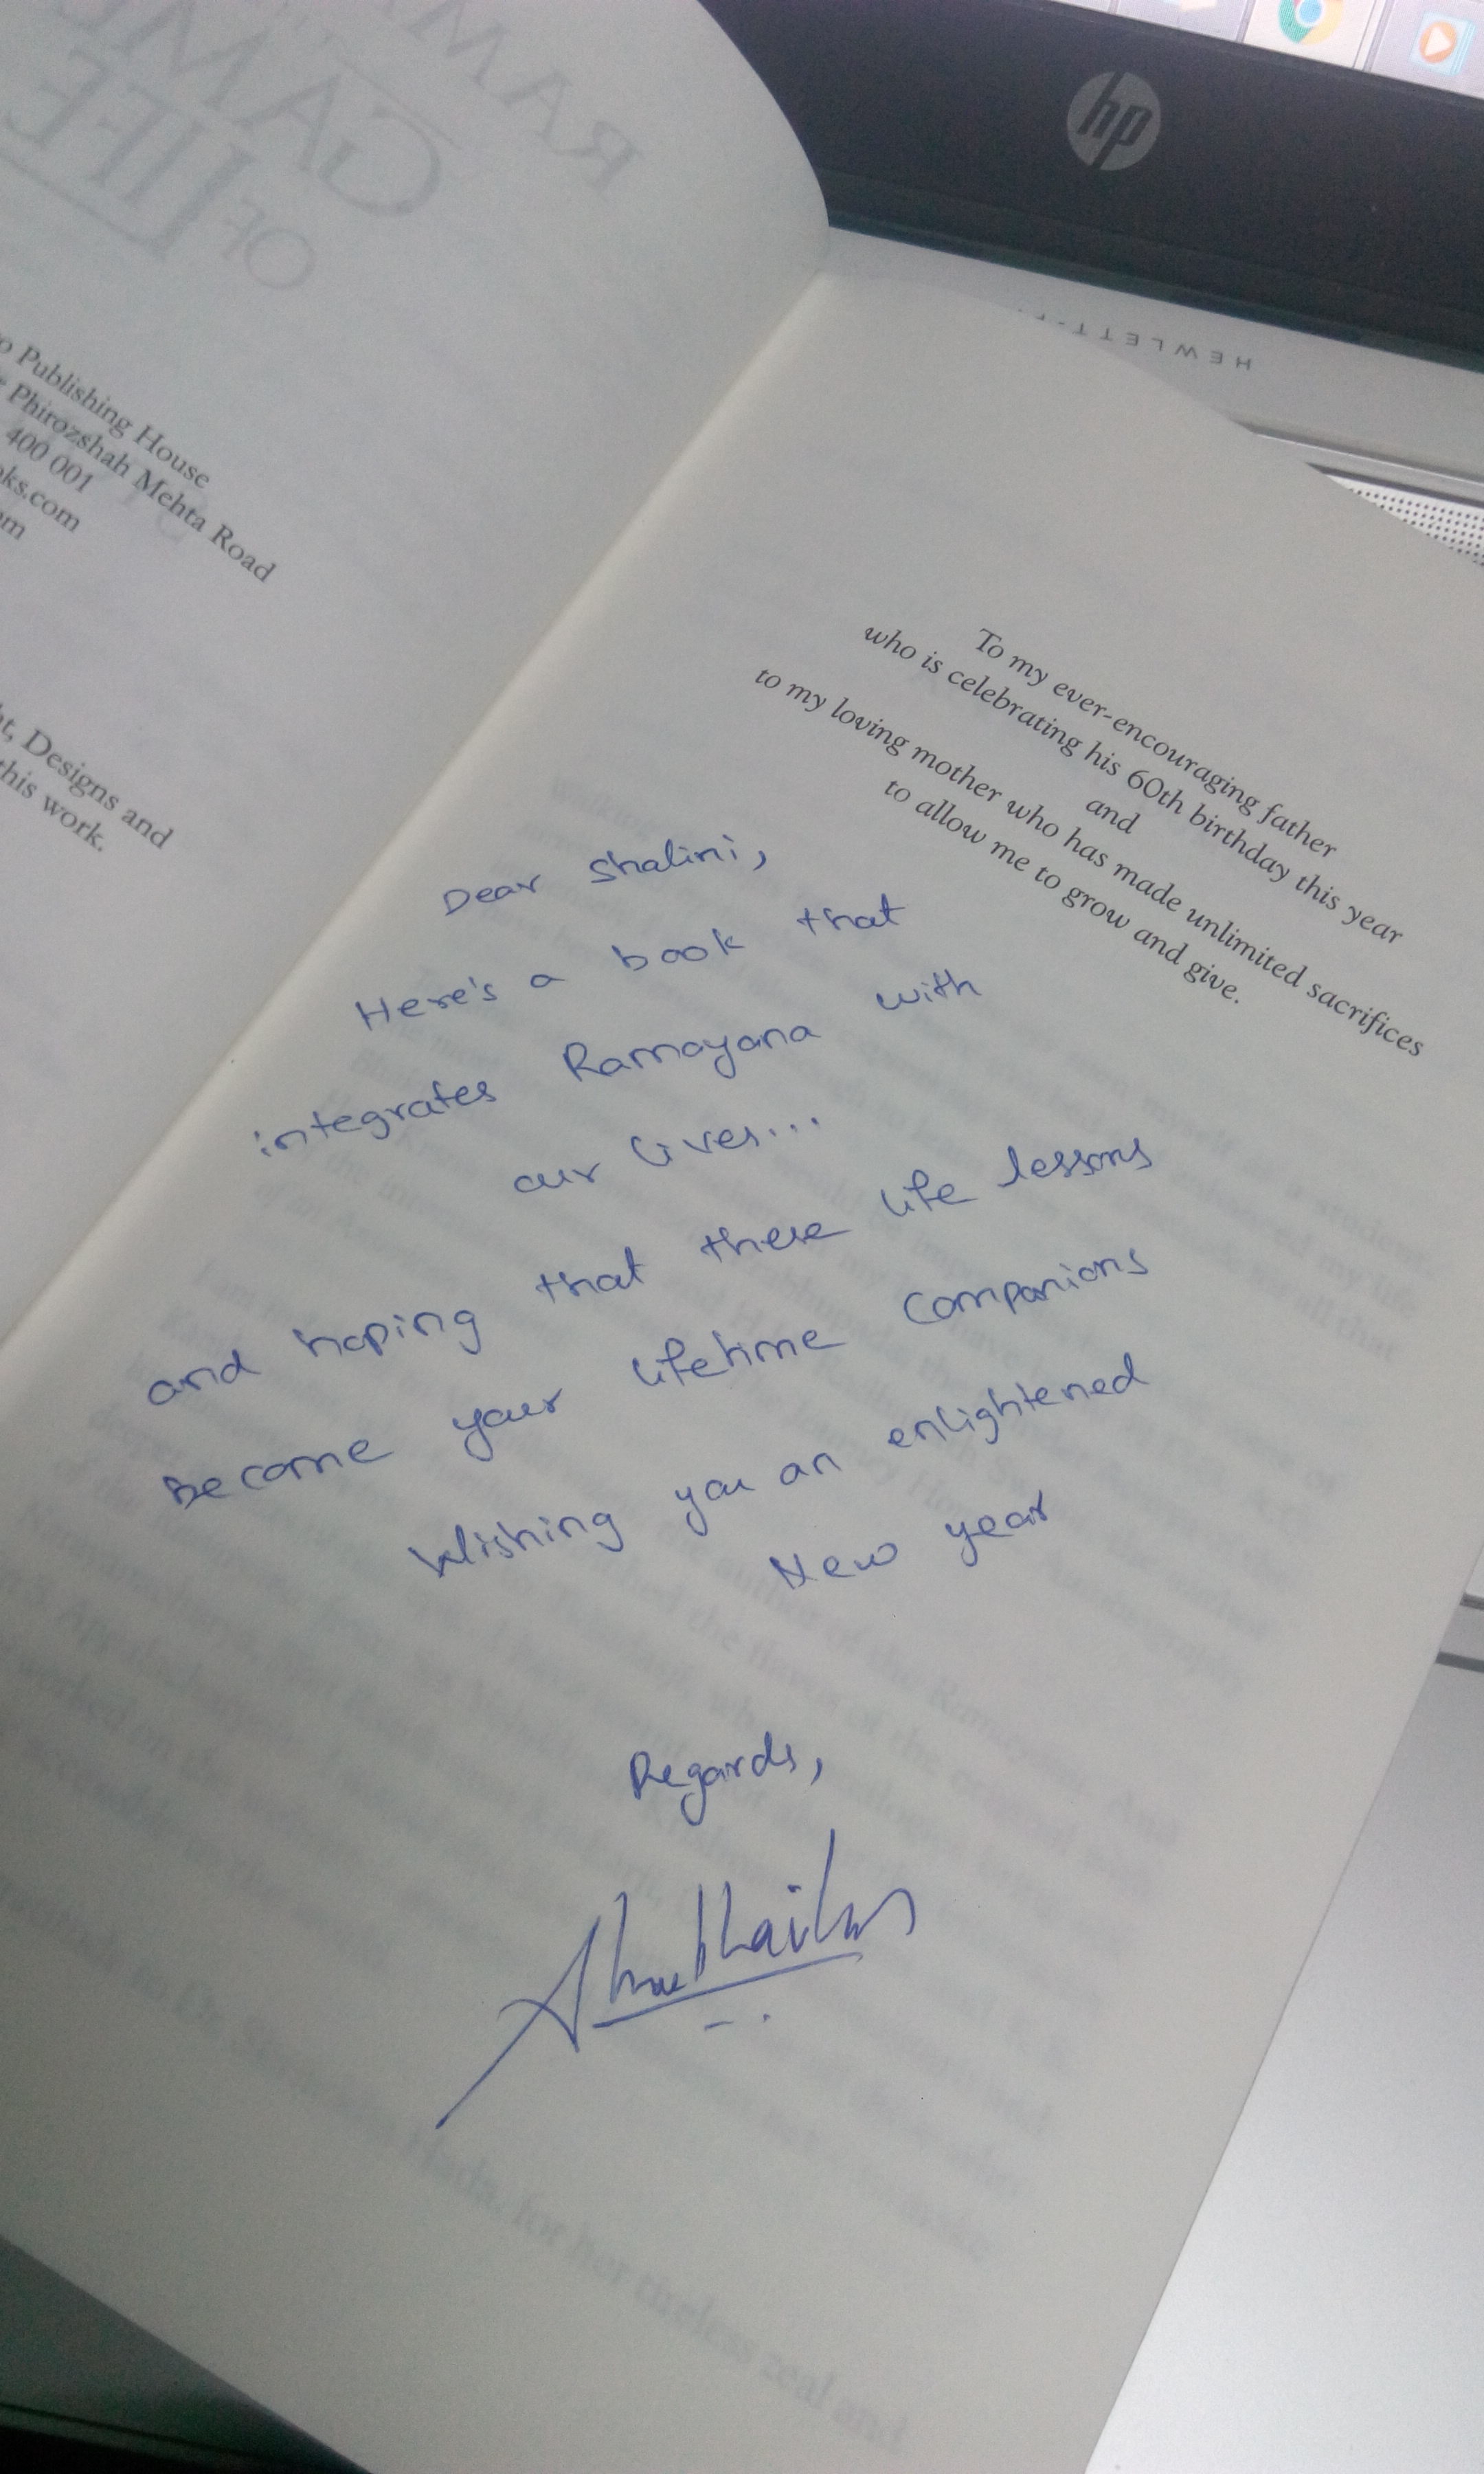 RAM
GAME
OF LIFE
Publishing House
Phirozshah Mehta Road
400 001
ks.com
m
t, Designs and
this work.
hp
HEWLETT-
To my ever-encouraging father
who is celebrating his 60th birthday this year
and
to my loving mother who has made unlimited sacrifices
to allow me to grow and give.
Dear Shalini,
Here's a book that
integrates Ramayana with
our lives...
and hoping that these life lessons
Become your lifetime companions
Wishing you an enlightened
New year
Regards,